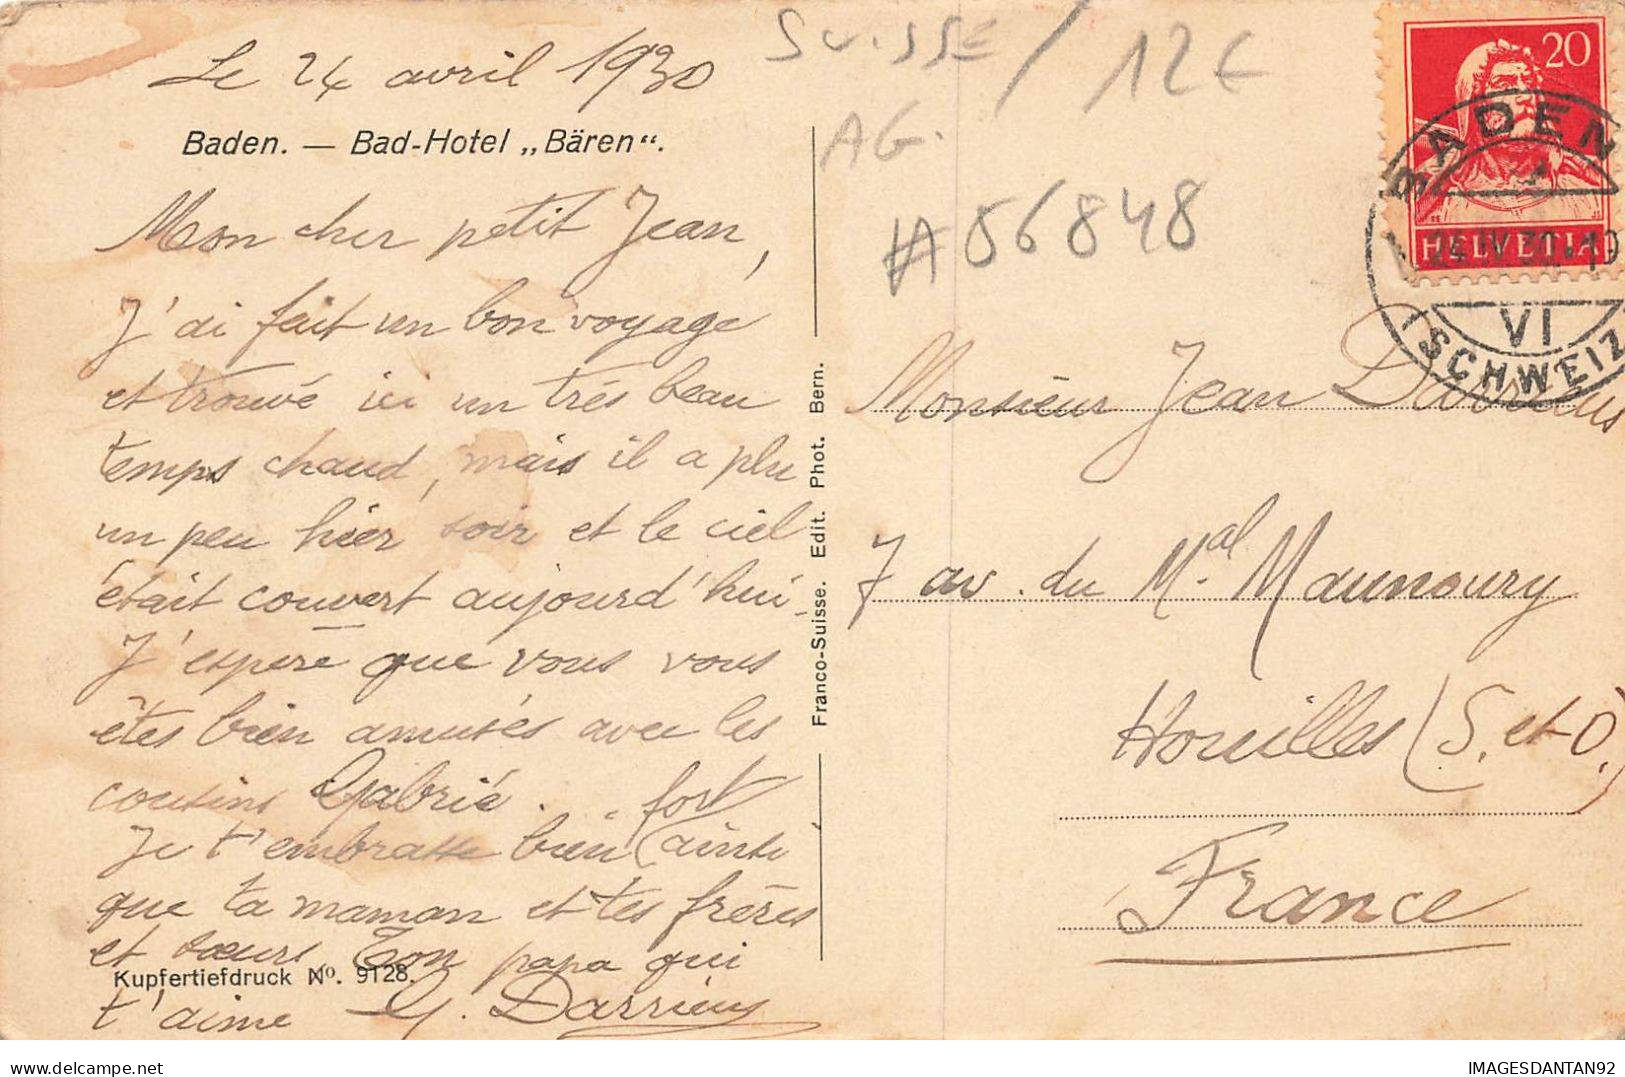 Le 24 avril 1930
Baden. — Bad-Hotel „Bären“.
Mon cher petit Jean,
J'ai fait un bon voyage
et trouvé ici un très beau
temps chaud, mais il a plu
un peu hier soir et le ciel
était couvert aujourd'hui.
J'espère que vous vous
êtes bien amusés avec les
cousins Gabrié.
Je t'embrasse bien fort ainsi
que ta maman et tes frères
et sœurs. Ton papa qui
t'aime G. Darrieus
Kupfertiefdruck No. 9128.
Franco-Suisse. Edit. Phot. Bern.
SUISSE / 12 €
AG.
#56848
20
HELVETIA
BADEN
24.IV.30
VI
(SCHWEIZ)
Monsieur Jean Darrieus
7 av. du Mal Maunoury
Houilles (S. et O.)
France
IMAGESDANTAN92